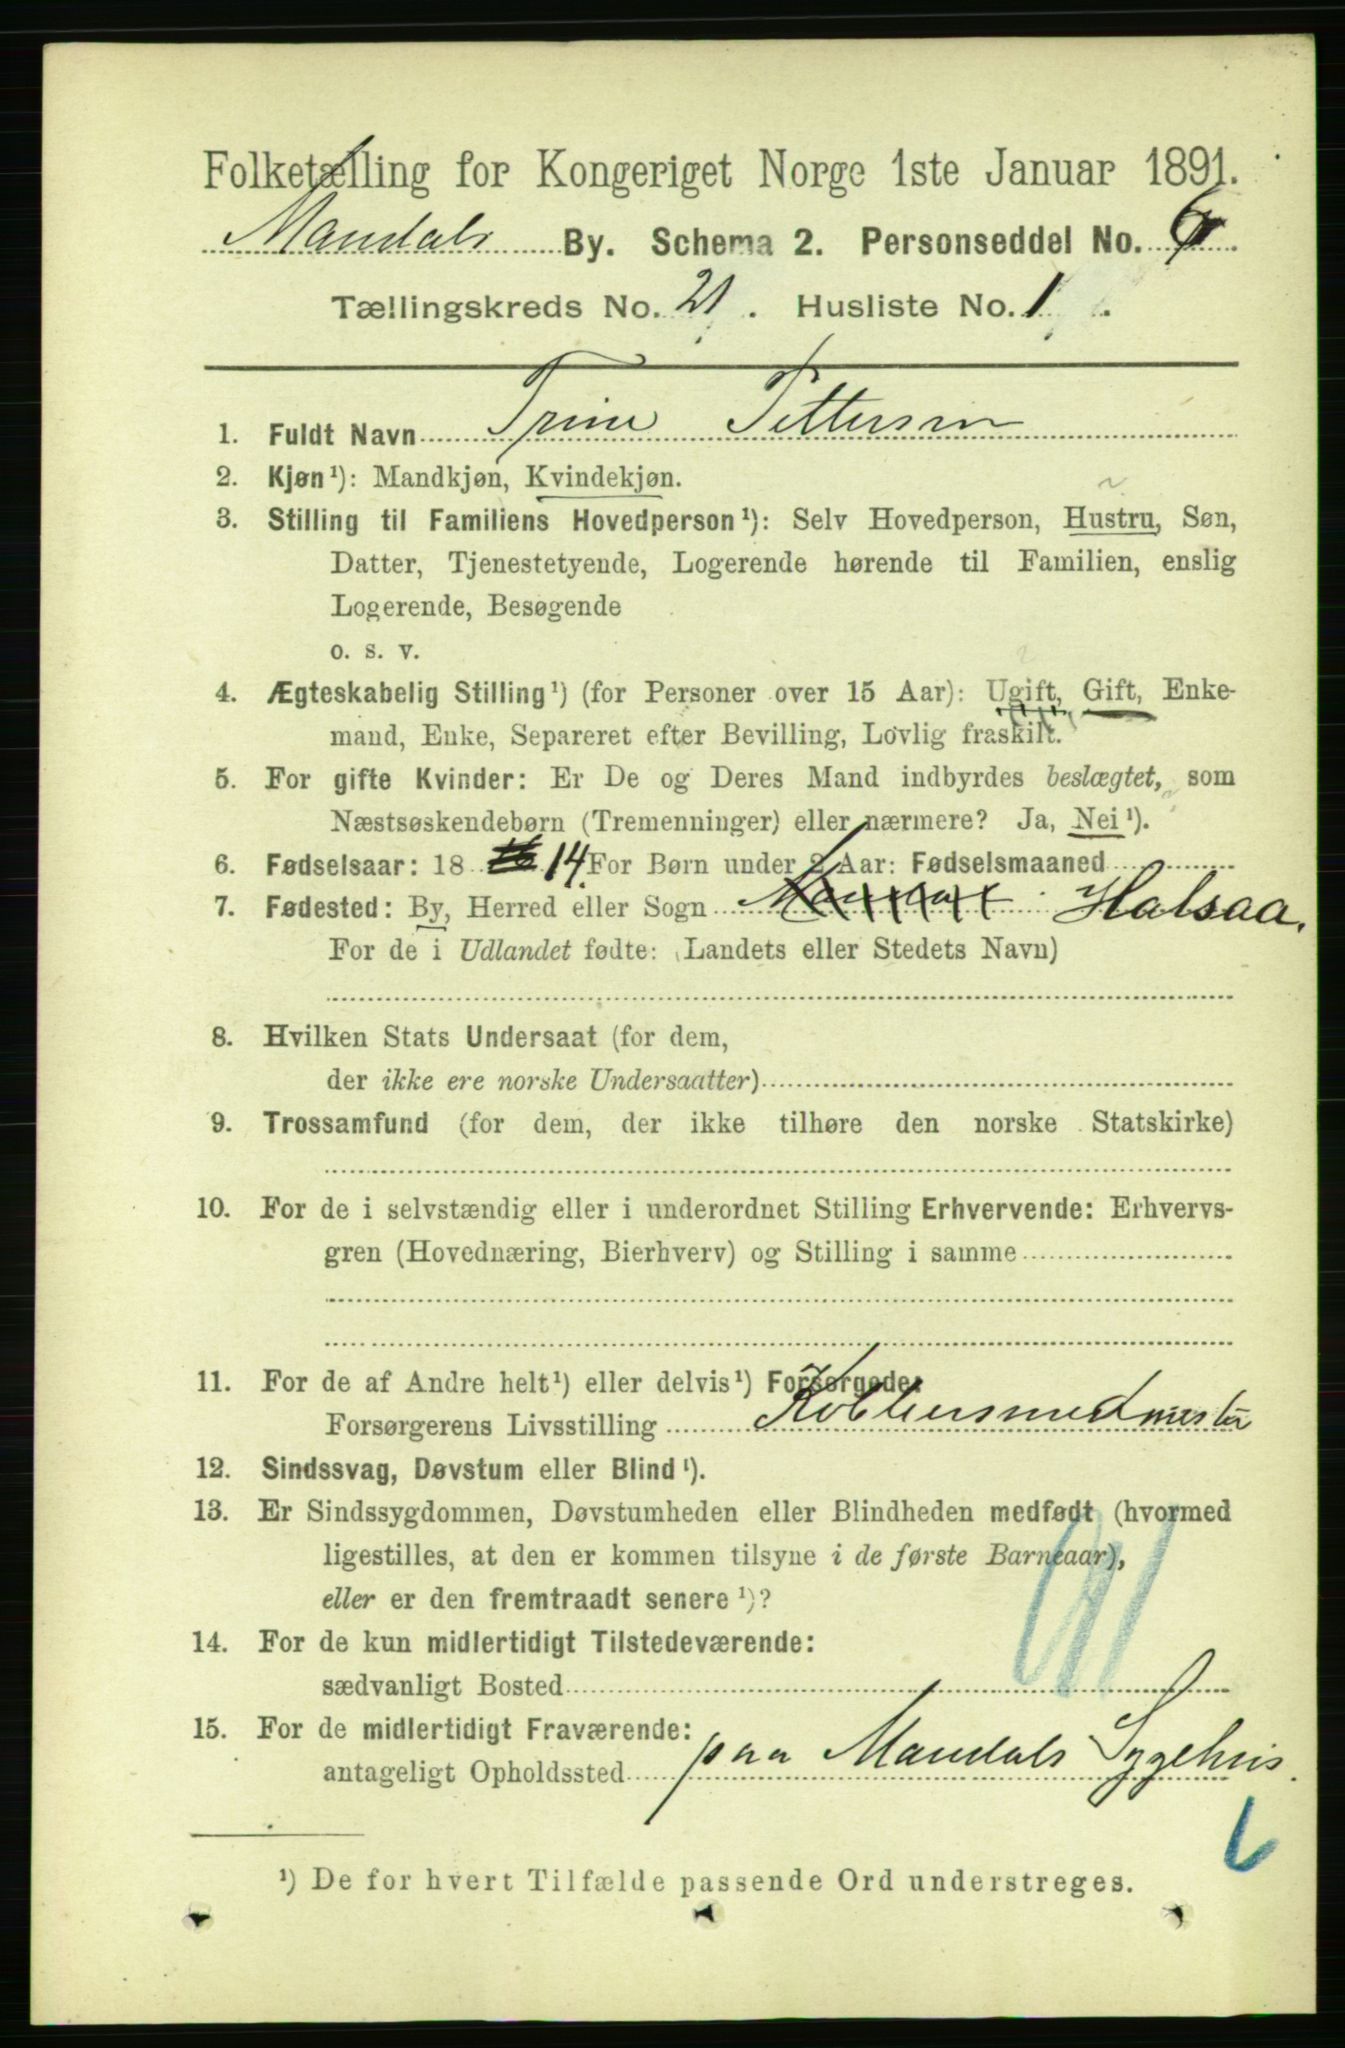 Folketælling for Kongeriget Norge 1ste Januar 1891.
Mandals By. Schema 2. Personseddel No. 6
Tællingskreds No. 21. Husliste No. 1.
1. Fuldt Navn Trine Pettersen
2. Kjøn¹): Mandkjøn, Kvindekjøn.
3. Stilling til Familiens Hovedperson¹): Selv Hovedperson, Hustru, Søn,
Datter, Tjenestetyende, Logerende hørende til Familien, enslig
Logerende, Besøgende
o. s. v.
4. Ægteskabelig Stilling¹) (for Personer over 15 Aar): Ugift, Gift, Enke-
mand, Enke, Separeret efter Bevilling, Lovlig fraskilt.
5. For gifte Kvinder: Er De og Deres Mand indbyrdes beslægtet, som
Næstsøskendebørn (Tremenninger) eller nærmere? Ja, Nei¹).
6. Fødselsaar: 18 14. For Børn under 2 Aar: Fødselsmaaned
7. Fødested: By, Herred eller Sogn Halsaa.
For de i Udlandet fødte: (Landets eller Stedets Navn)
8. Hvilken Stats Undersaat (for dem,
der ikke ere norske Undersaatter)
9. Trossamfund (for dem, der ikke tilhøre den norske Statskirke)
10. For de i selvstændig eller i underordnet Stilling Erhvervende: Erhvervs-
gren (Hovednæring, Bierhverv) og Stilling i samme
11. For de af Andre helt¹) eller delvis¹) Forsørgede:
Forsørgerens Livsstilling Kobbersmedmester
12. Sindssvag, Døvstum eller Blind¹).
13. Er Sindssygdommen, Døvstumheden eller Blindheden medfødt (hvormed
ligestilles, at den er kommen tilsyne i de første Barneaar),
eller er den fremtraadt senere¹)?
14. For de kun midlertidigt Tilstedeværende:
sædvanligt Bosted
15. For de midlertidigt Fraværende:
antageligt Opholdssted paa Mandals Sygehus.
6
¹) De for hvert Tilfælde passende Ord understreges.